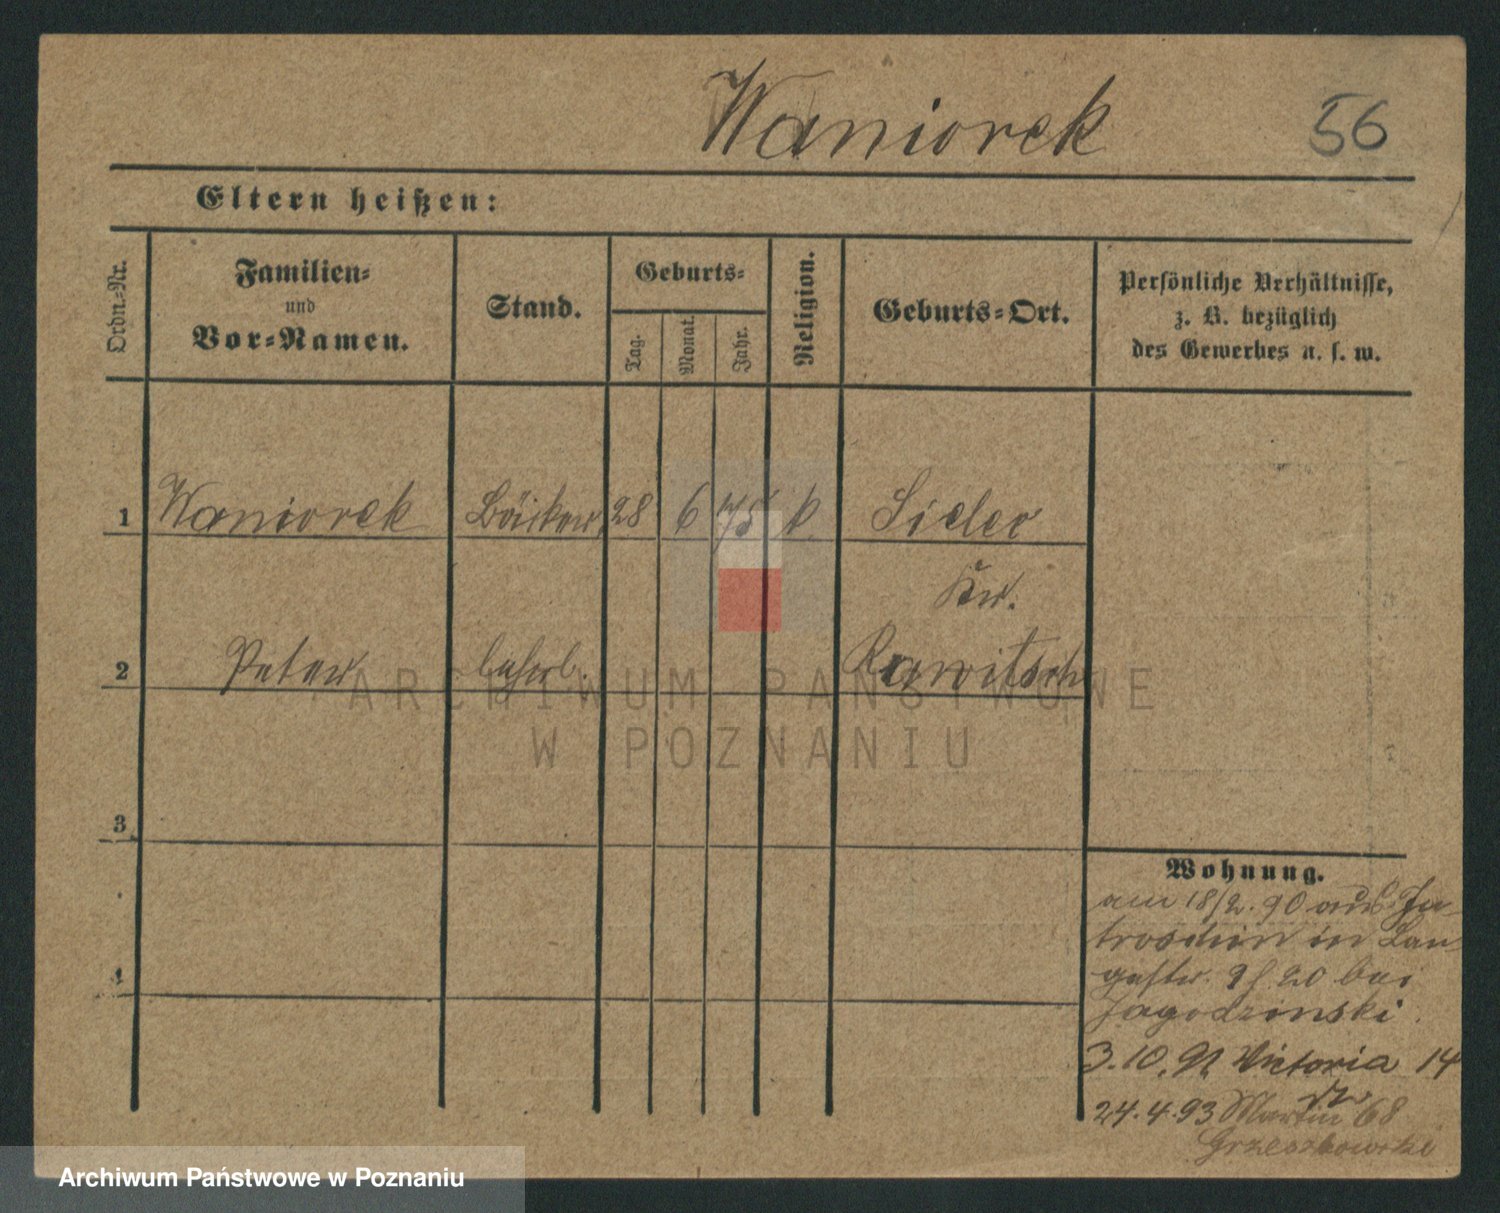 Waniorek 56
Eltern heißen:
Ordn.-Nr.
Familien-
und
Vor-Namen.
Stand.
Geburts-
Tag.
Monat.
Jahr.
Religion.
Geburts-Ort.
Persönliche Verhältnisse,
z. B. bezüglich
des Gewerbes u. s. w.
1 Waniorek Bäcker 28 6 75 k.
Kr.
2 Peter Rawitsch
3
4
Wohnung.
am 18/2. 90 aus Ju-
troschin in Lan-
gestr. 20 bei
Jagodzinski.
3.10.91 Victoria 14
24.4.93 Martin 68
Grzeszkowski
ARCHIWUM PAŃSTWOWE
W POZNANIU
Archiwum Państwowe w Poznaniu